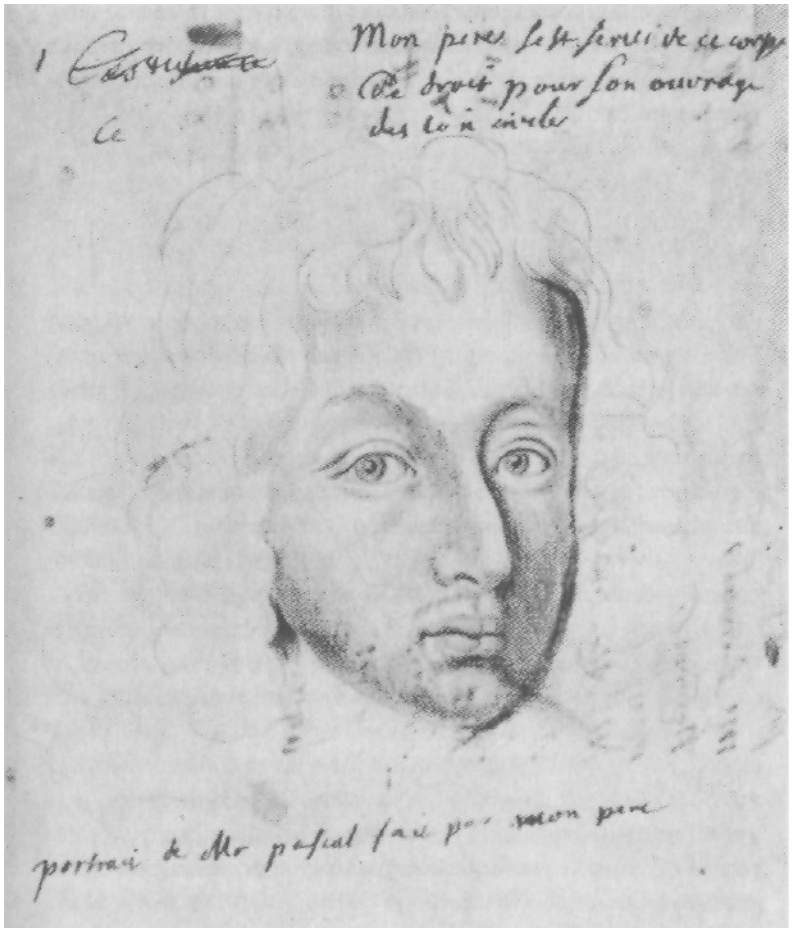 1
Mon peres sest servi de ce corps
De droit pour son ouvrage
des loix civiles
Ce
portrait de Mr pascal fait par mon pere